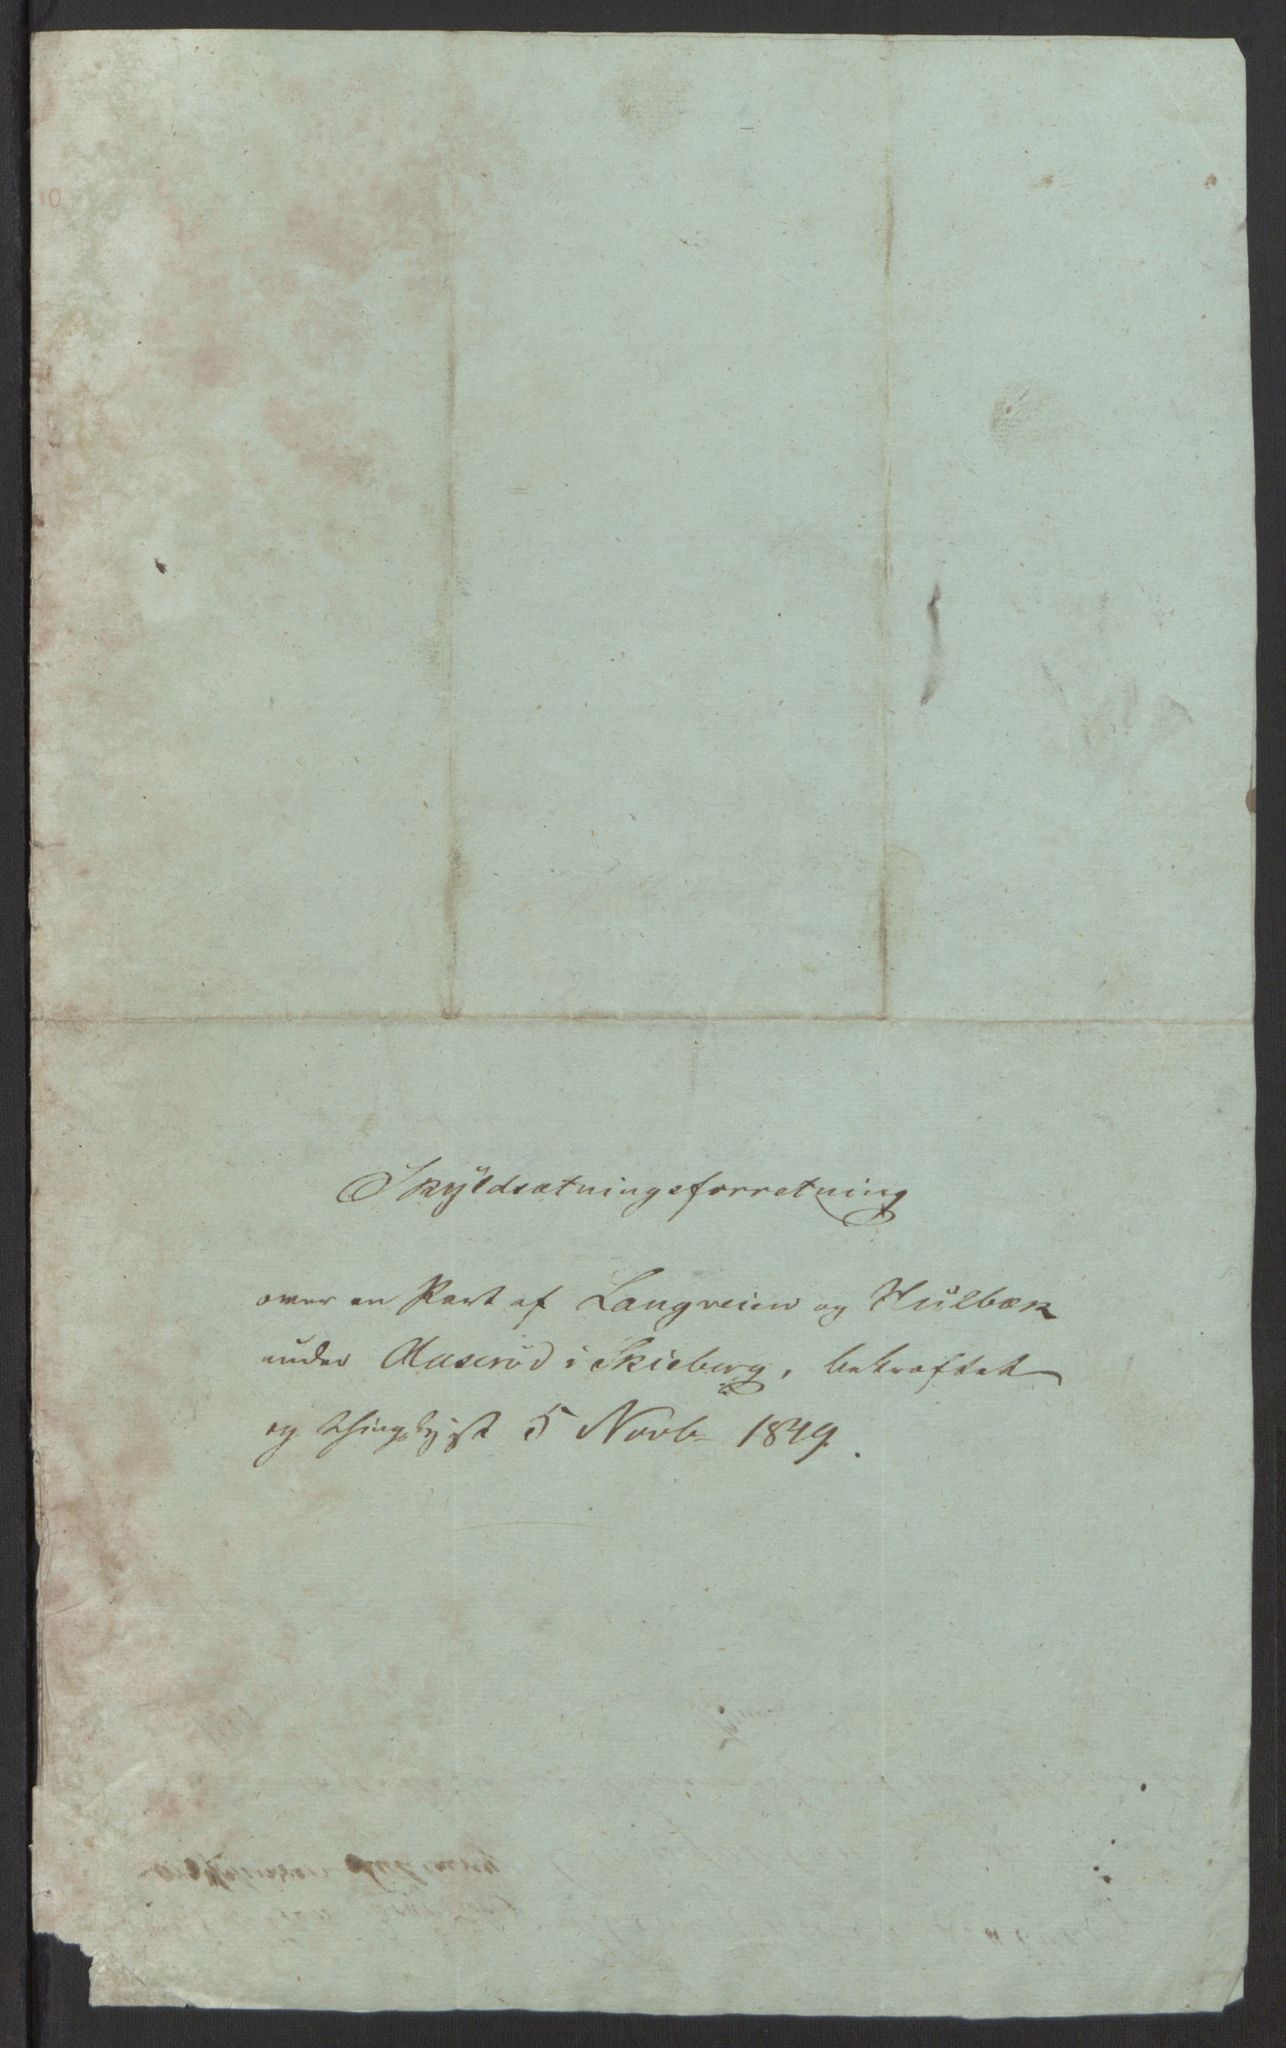 10
Skyldsætningsforretning
over en Part af Langveien og Hulbæk
under i Skieberg, bekræftet
og thinglyst 5 Novb 1849.